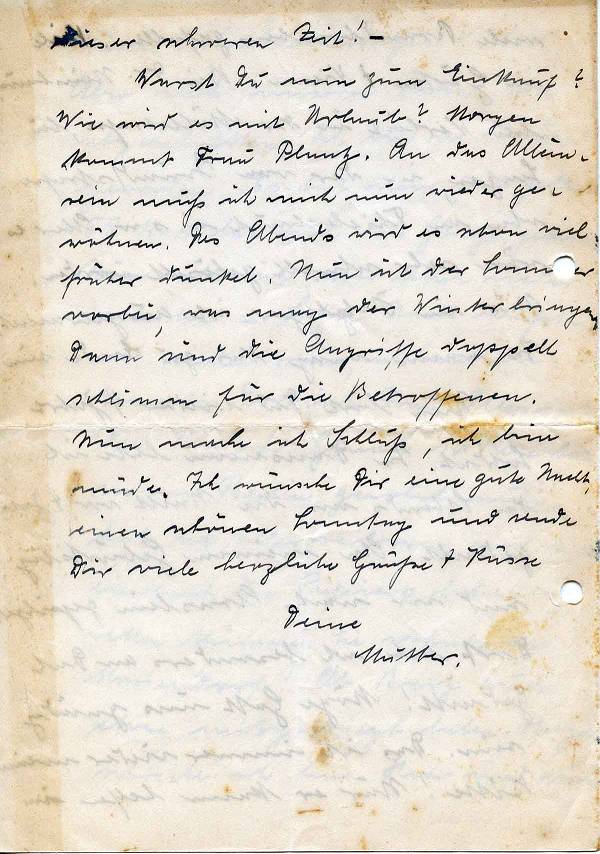 dieser schweren Zeit! –
Warst Du nun zum Einkauf?
Wie wird es mit Urlaub? Morgen
kommt Frau Pluntz. An das Allein-
sein muß ich mich nun wieder ge-
wöhnen. Des Abends wird es schon viel
früher dunkel. Nun ist der Sommer
vorbei, was mag der Winter bringen,
Dann sind die Angriffe doppelt
schlimm für die Betroffenen.
Nun mache ich Schluß, ich bin
müde. Ich wünsche Dir eine gute Nacht,
einen schönen Sonntag und sende
Dir viele herzliche Grüße + Küsse
Deine
Mutter.